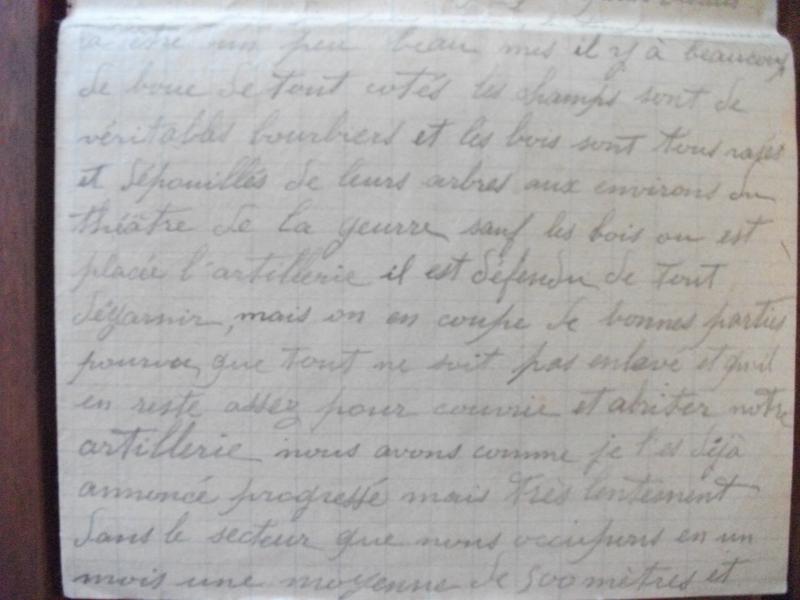 a être un peu beau mes il y à beaucoup
de boue de tout cotés les champs sont de
véritables bourbiers et les bois sont tous rasés
et dépouillés de leurs arbres aux environs du
théâtre de la geurre sauf les bois ou est
placée l'artillerie il est défendu de tout
dégarnir, mais on en coupe de bonnes parties
pourvu que tout ne soit pas enlevé et qu'il
en reste assez pour couvrir et abriter notre
artillerie nous avons comme je t'es déjà
annoncé progressé mais très lentement
dans le secteur que nous occupons en un
mois une moyenne de 500 mètres et